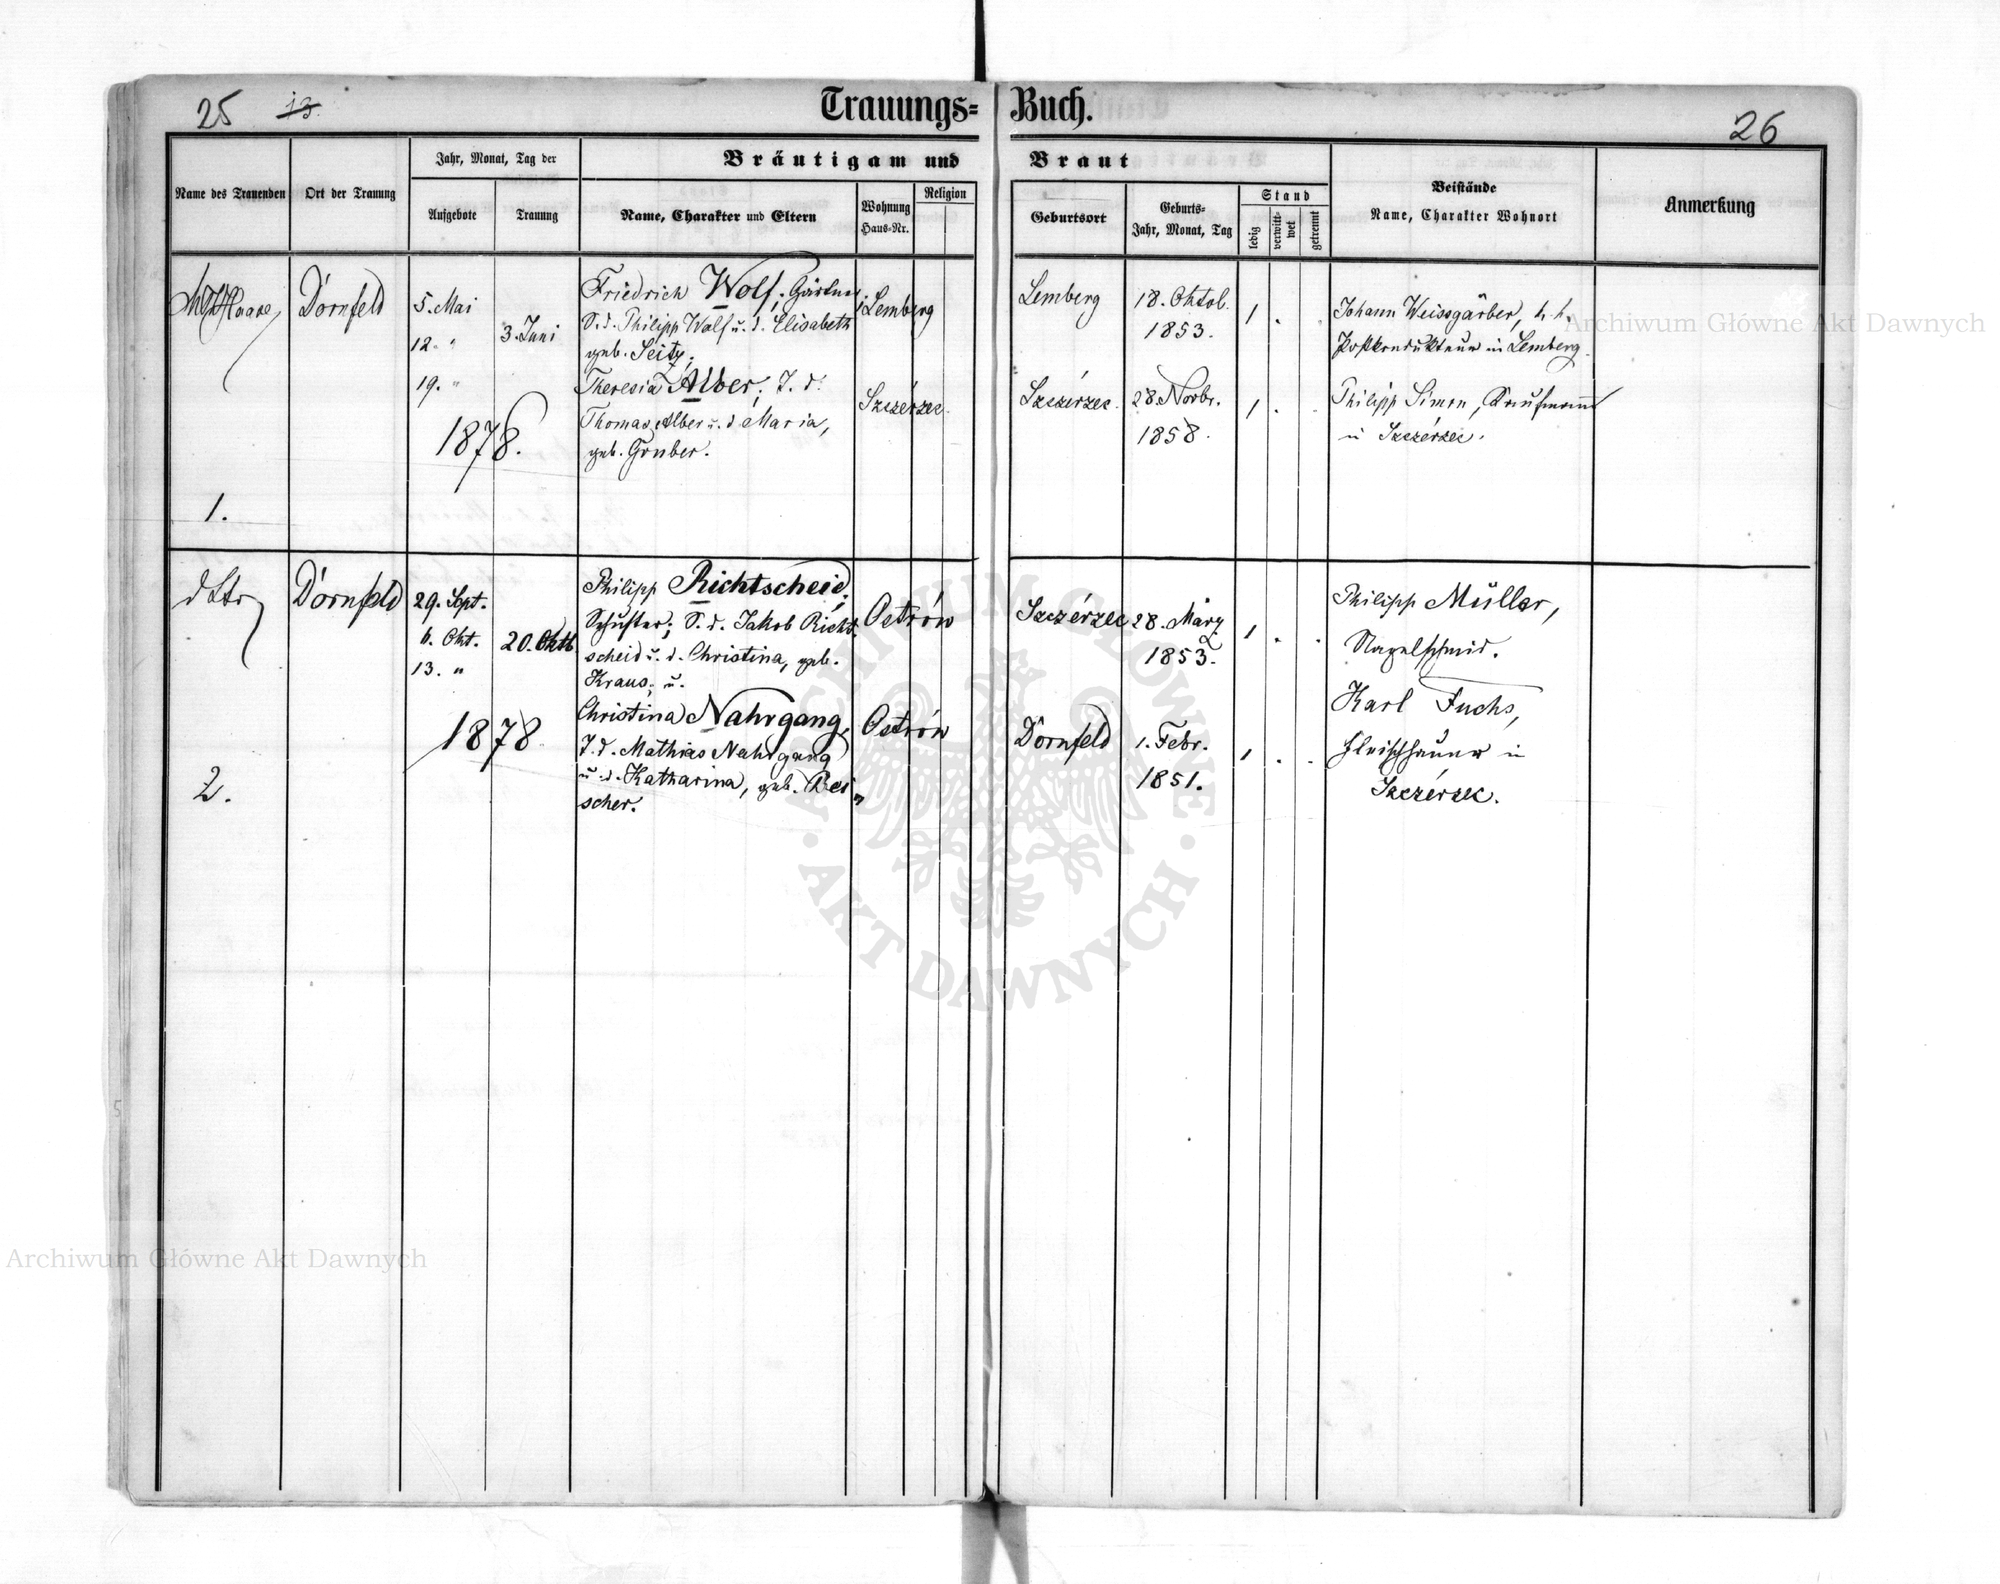 25 13.
Trauungs- Buch.
26
Name des Trauenden
Ort der Trauung
Jahr, Monat, Tag der
Aufgebote
Trauung
Bräutigam und Braut
Name, Charakter und Eltern
Wohnung
Haus-Nr.
Religion
Geburtsort
Geburts-
Jahr, Monat, Tag
Stand
ledig
verwitt-
wet
getrennt
Beistände
Name, Charakter Wohnort
Anmerkung
Haase
Dornfeld
5. Mai
12. "
19. "
1878.
3. Juni
Friedrich Wolf, Gärtner
S. d. Philipp Wolf u. d. Elisabeth
geb. Seitz;
Theresia Alber, T. d.
Thomas Alber u. d. Maria,
geb. Gruber.
Lemberg
Szczérzec.
Lemberg
Szczérzec.
18. Oktob.
1853.
28. Novbr.
1858.
1 .
1 . .
Johann Weissgärber, k. k.
Postkondukteur in Lemberg.
Philipp Simon, Kaufmann
in Szczérzec.
1.
Dornfeld
29. Sept.
6. Okt.
13. "
1878
20. Oktb.
Philipp Richtscheid,
Schuster; S. d. Jakob Richt-
scheid u. d. Christina, geb.
Kraus; u.
Christina Nahrgang,
T. d. Mathias Nahrgang
u. d. Katharina, geb. Rei"
scher.
Ostrów
Ostrów
Szczérzec
Dornfeld
28. März
1853.
1. Febr.
1851.
1 . .
1 . .
Philipp Müller,
Nagelschmid.
Karl Fuchs,
Fleischhauer in
Szczérzec.
2.
Archiwum Główne Akt Dawnych
Archiwum Główne Akt Dawnych
ARCHIWUM GŁÓWNE · AKT DAWNYCH ·